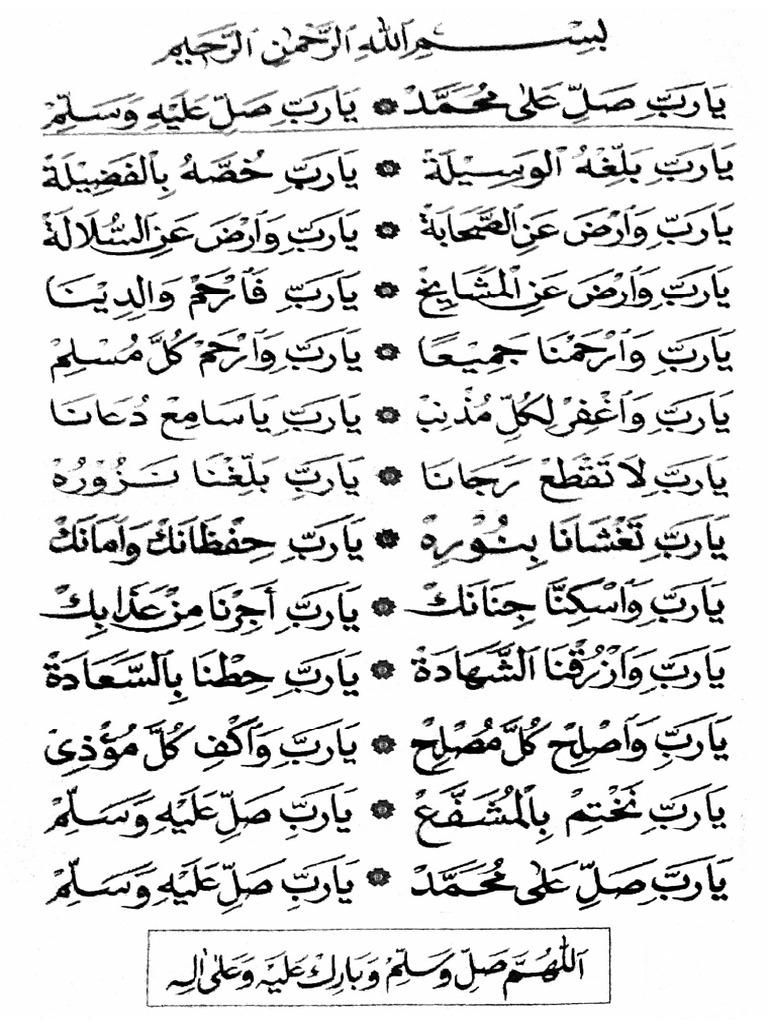 بِسْــــمِ اللهِ الرَّحْمٰنِ الرَّحِيْمِ
يَارَبِّ صَلِّ عَلٰى مُحَمَّدْ ۞ يَارَبِّ صَلِّ عَلَيْهِ وَسَلِّمْ
يَارَبِّ بَلِّغْهُ الْوَسِيْلَةْ ۞ يَارَبِّ خُصَّهُ بِالْفَضِيْلَةْ
يَارَبِّ وَارْضَ عَنِ الصَّحَابَةْ ۞ يَارَبِّ وَارْضَ عَنِ السُّلَالَةْ
يَارَبِّ وَارْضَ عَنِ الْمَشَايِخْ ۞ يَارَبِّ فَارْحَمْ وَالِدِيْنَا
يَارَبِّ وَارْحَمْنَا جَمِيْعًا ۞ يَارَبِّ وَارْحَمْ كُلَّ مُسْلِمْ
يَارَبِّ وَاغْفِرْ لِكُلِّ مُذْنِبْ ۞ يَارَبِّ يَاسَامِعْ دُعَانَا
يَارَبِّ لَا تَقْطَعْ رَجَانَا ۞ يَارَبِّ بَلِّغْنَا نَزُوْرُهْ
يَارَبِّ تَغْشَانَا بِنُوْرِهْ ۞ يَارَبِّ حِفْظَانَكْ وَامَانَكْ
يَارَبِّ وَاسْكِنَّا جِنَانَكْ ۞ يَارَبِّ أَجِرْنَا مِنْ عَذَابِكْ
يَارَبِّ وَارْزُقْنَا الشَّهَادَةْ ۞ يَارَبِّ حِطْنَا بِالسَّعَادَةْ
يَارَبِّ وَاصْلِحْ كُلَّ مُصْلِحْ ۞ يَارَبِّ وَاكْفِ كُلَّ مُؤْذِيْ
يَارَبِّ نَخْتِمْ بِالْمُشَفَّعْ ۞ يَارَبِّ صَلِّ عَلَيْهِ وَسَلِّمْ
يَارَبِّ صَلِّ عَلٰى مُحَمَّدْ ۞ يَارَبِّ صَلِّ عَلَيْهِ وَسَلِّمْ
اَللّٰهُمَّ صَلِّ وَسَلِّمْ وَبَارِكْ عَلَيْهِ وَعَلٰى اٰلِهِ